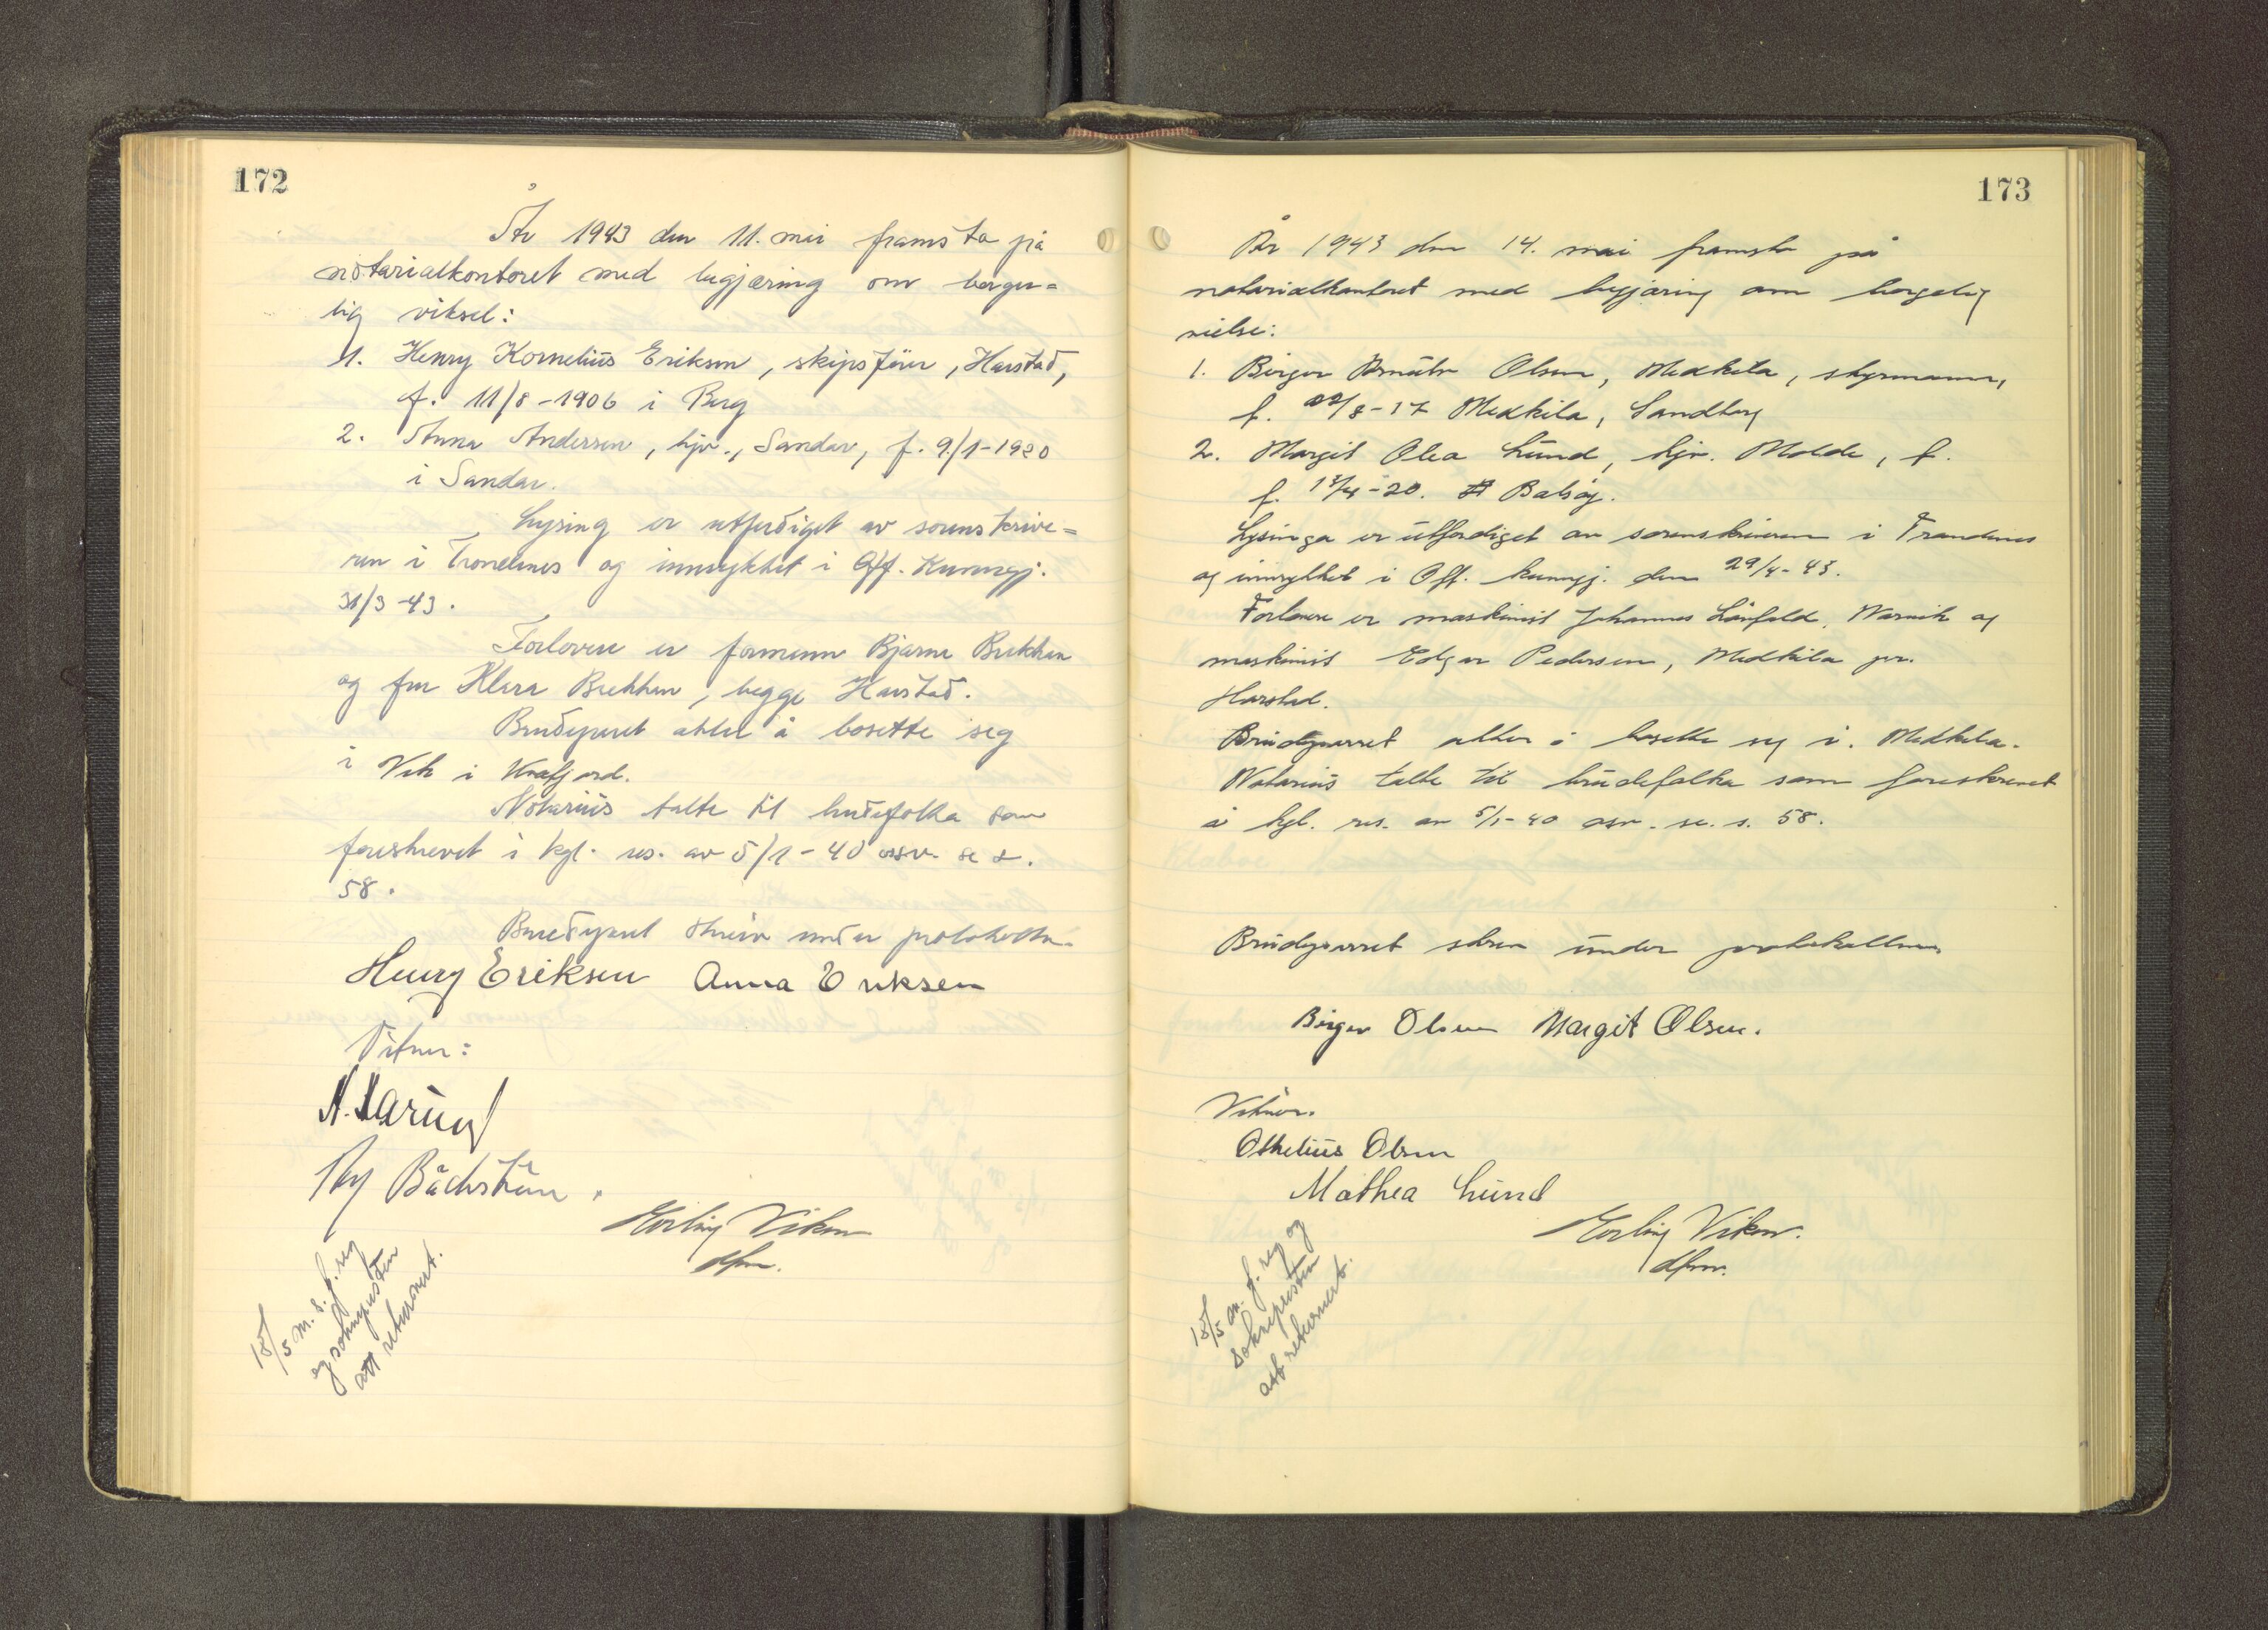 172
År 1943 den 11. mai framsto på
notarialkontoret med begjæring om borger=
lig viksel:
1. Henry Kornelius Eriksen, skipsfører, Harstad,
f. 11/8-1906 i Berg
2. Anna Andersen, hjv., Sandar, f. 9/1-1920
i Sandar.
Lysing er utferdiget av sorenskrive=
ren i Trondenes og innrykket i Off. Kunngj.
31/3-43.
Forlovere er formann Bjarne Brekken
og fru Klara Brekken, begge Harstad.
Brudeparet akter å bosette seg
i Vik i
Notarius talte til brudefolka som
foreskrevet i kgl. res. av 5/1-40 osv. se s.
58.
Brudeparet skreiv under protokollen.
Henry Eriksen Anna Eriksen
Vitner:
Erling Viken
dfm.
18/5 m. s. f. reg
og sokneprsten
att returnert.
173
År 1943 den 14. mai framsto på
notarialkontoret med begjæring om borgelig
vielse:
1. Birger Olsen, Medkila, styrmann,
f. 22/8-17 Medkila, Sandtorg
2. Margit Olea Lund, hjv. Molde, f.
f. 13/4-20.
Lysinga er utferdiget av sorenskriveren i Trondenes
og innrykket i Off. kunngj. den 29/4-43.
Forlovere er maskinist Johannes og
maskinist Edgar Pedersen, Medkila pr.
Harstad.
Brudeparret akter å bosette seg i. Medkila.
Notarius talte til brudefolka som foreskrevet
i kgl. res. av 5/1-40 osv. se. s. 58.
Brudeparret skrev under protokollen.
Birger Olsen Margit Olsen.
Vitner.
Othelius Olsen
Mathea Lund
Erling Viken.
dfm.
18/5 m. f. reg og
sokneprsten
att returnert.